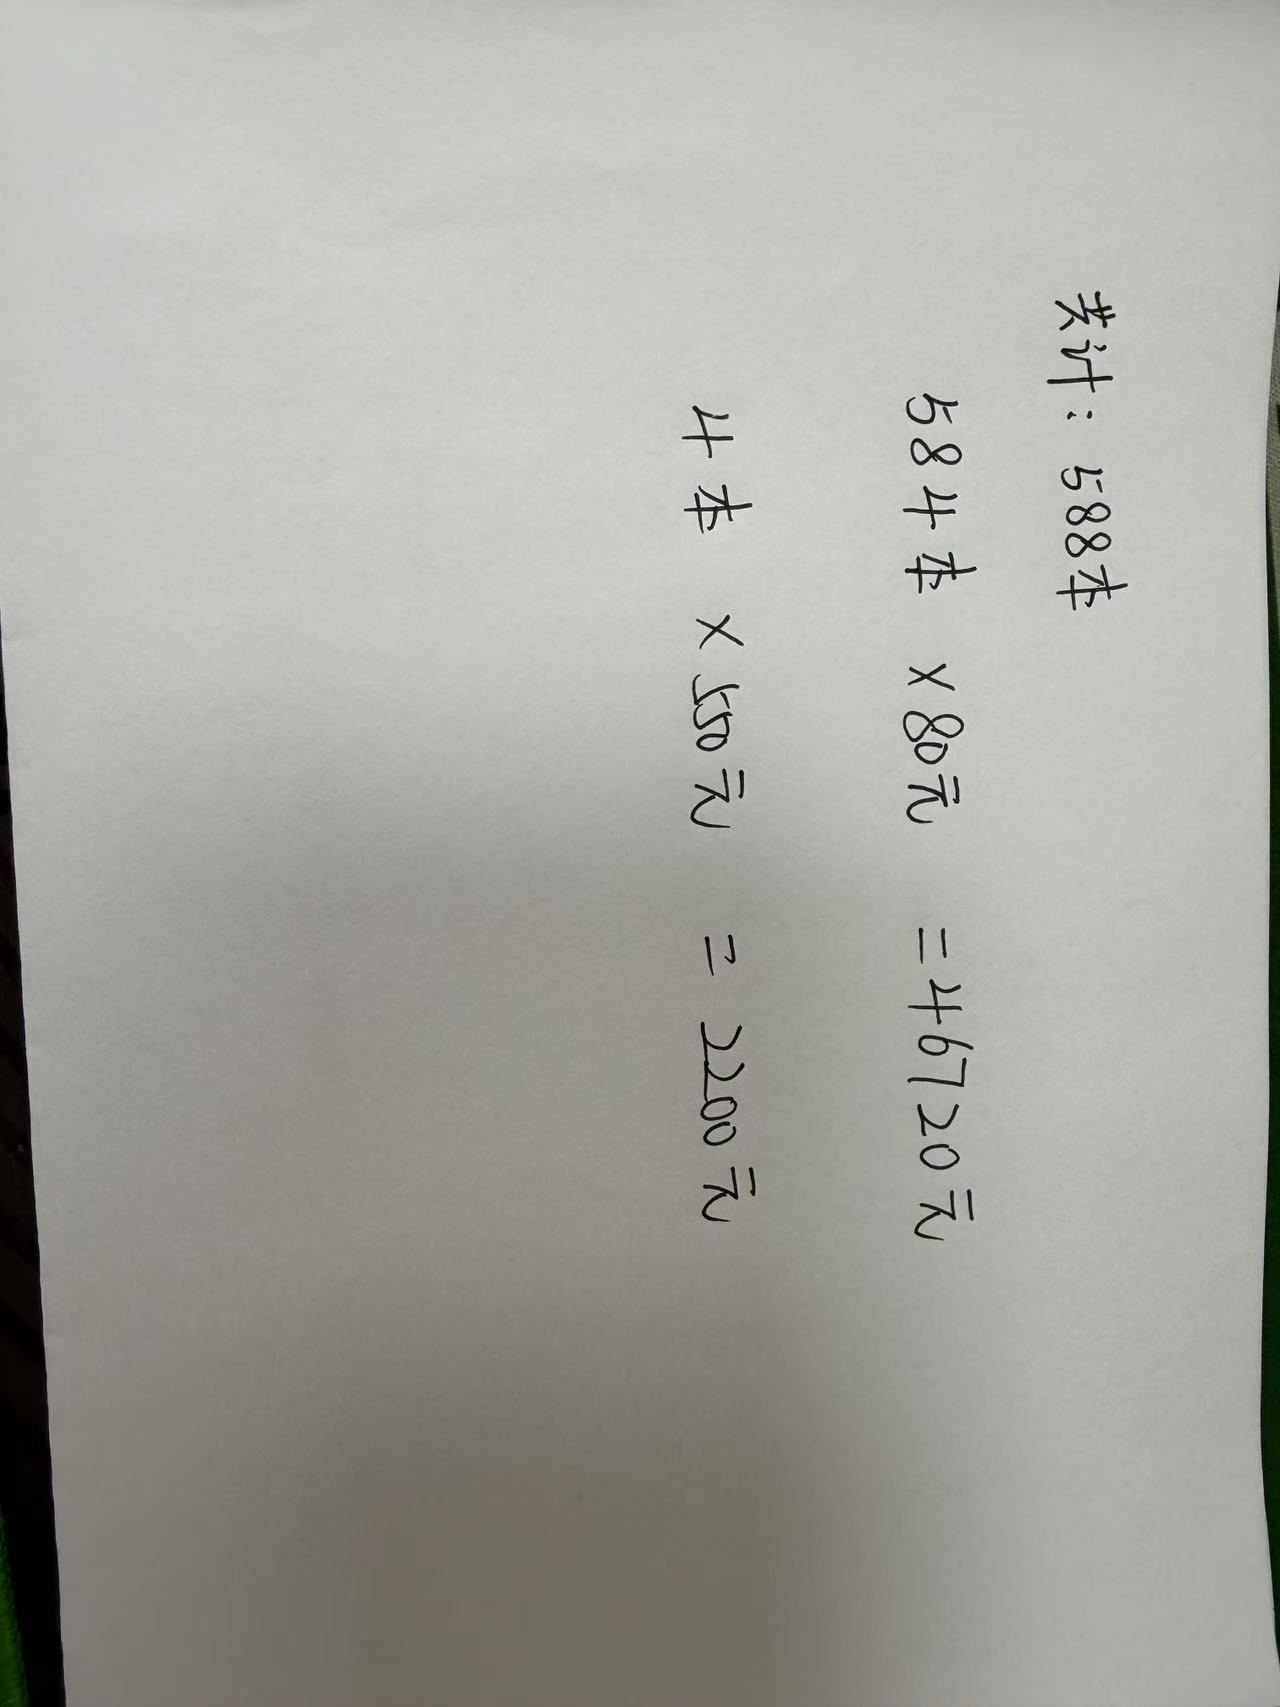 共计：588本
584本 ×80元 =46720元
4本 ×550元 = 2200元